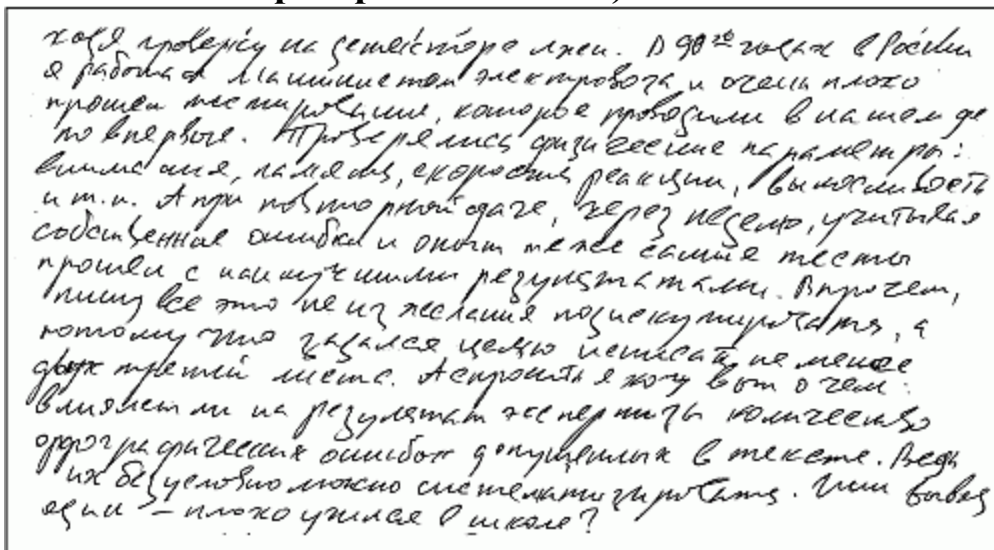 ходя проверку на детекторе лжи. В 90ых годах в России
я работал машинистом электровоза и очень плохо
прошел тестирование, которое проводили в нашем де
по впервые. Проверялись физические параметры:
внимания, память, скорость реакции, выносливость
и т.п. А при повторной сдаче, через неделю, учитывая
собственные ошибки и опыт те же самые тесты
прошел с наилучшими результатами. Впрочем,
пишу все это не из желания подискутировать, а
потому что задался целью исписать не менее
двух третей листа. А спросить я хочу вот о чем:
влияет ли на результат экспертизы количество
орфографических ошибок допущенных в тексте. Ведь
их безусловно можно систематизировать. Или вывод
один – плохо учился в школе?